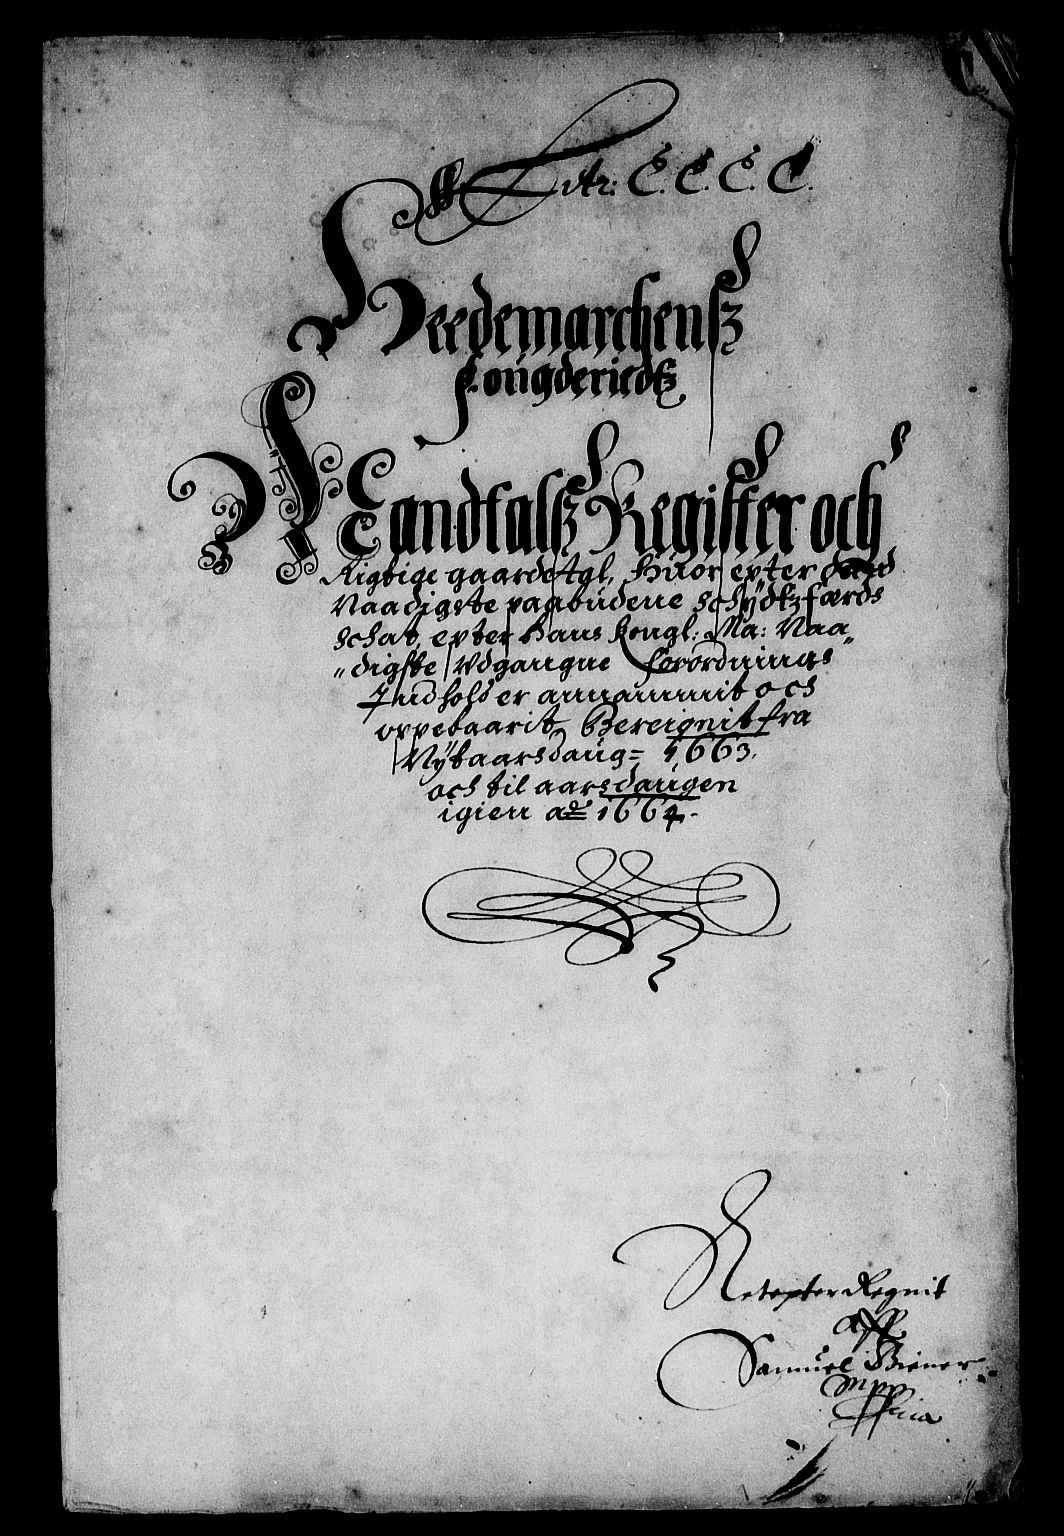 Litr: C. C. C. C.
Heedemarchensz
Fougderiedtz
Mandtalsz Register och
Rigtige gaardetal, Huor epter
Naadigste paabudene Schydtzfærds
Schat, epter Hans Kongl: Ma: Naa„
„digste Udgangne Forordnings
Indhold er annammit och
oppebaarit, Bereignit fra
Nytaarsdaug= 1663.
och til aarsdaugen
igien ao 1664.
Retepter Regnit
Aff
Samuel Biener
Mpp